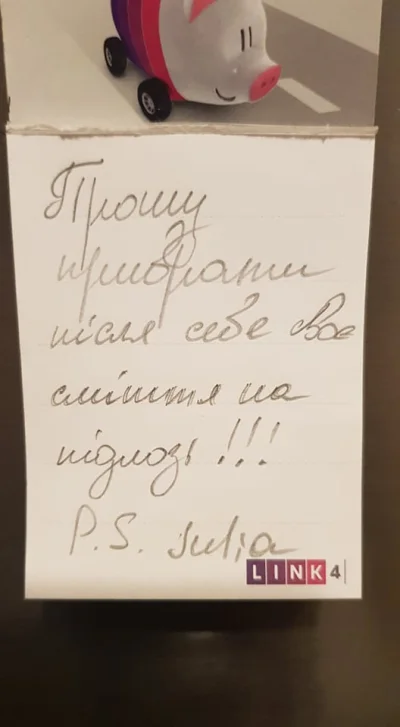 Прошу
прибрати
після себе своє
сміття на
підлозі !!!
P.S. Julia
LINK4